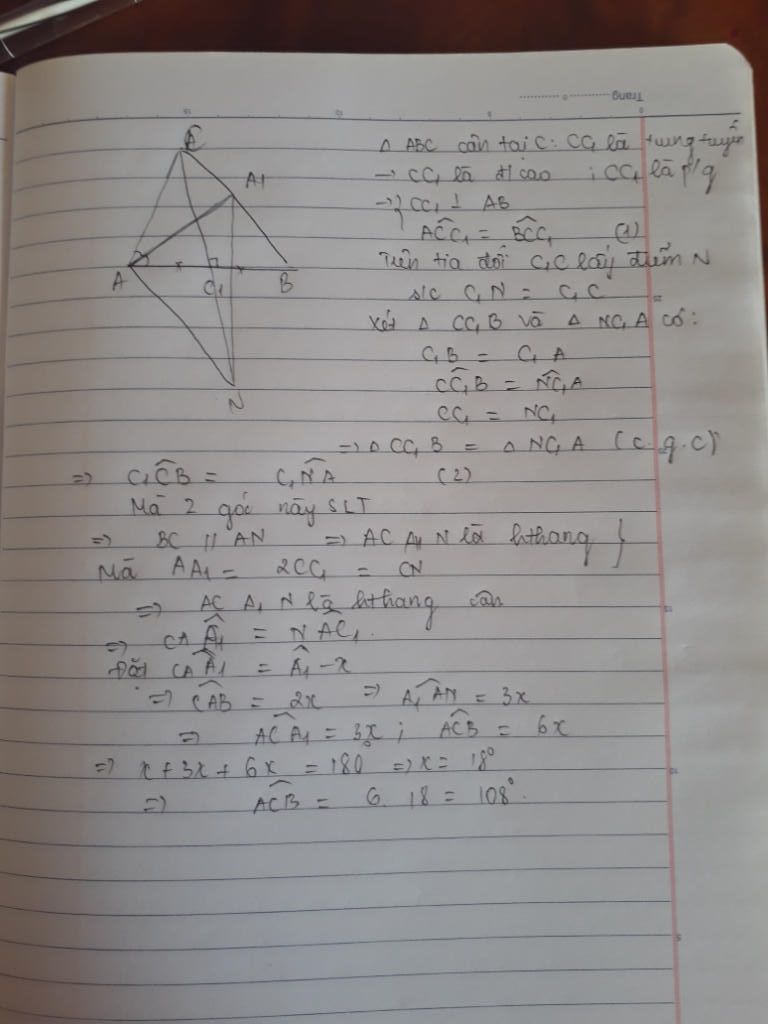 Trang
C
A1
A
C1
B
N
Δ ABC cân tại C: CC1 là trung tuyến
→ CC1 là đ/cao ; CC1 là p/g
→ } CC1 ⊥ AB
ACC1 = BCC1 (1)
Trên tia đối C1C lấy điểm N
s/c C1N = C1C
Xét Δ CC1B và Δ NC1A có:
C1B = C1A
CC1B = NC1A
CC1 = NC1
⇒ Δ CC1B = Δ NC1A (c.g.c)
⇒ C1CB = C1NA (2)
Mà 2 góc này SLT
⇒ BC // AN ⇒ AC A1 N là hthang }
Mà AA1 = 2CC1 = CN
⇒ AC A1 N là hthang cân
⇒ CAA1 = NAC1.
Đặt CAA1 = A1 - x
⇒ CAB = 2x ⇒ A1AN = 3x
⇒ ACA1 = 3x ; ACB = 6x
⇒ x + 3x + 6x = 180° ⇒ x = 18°
⇒ ACB = 6. 18 = 108°.